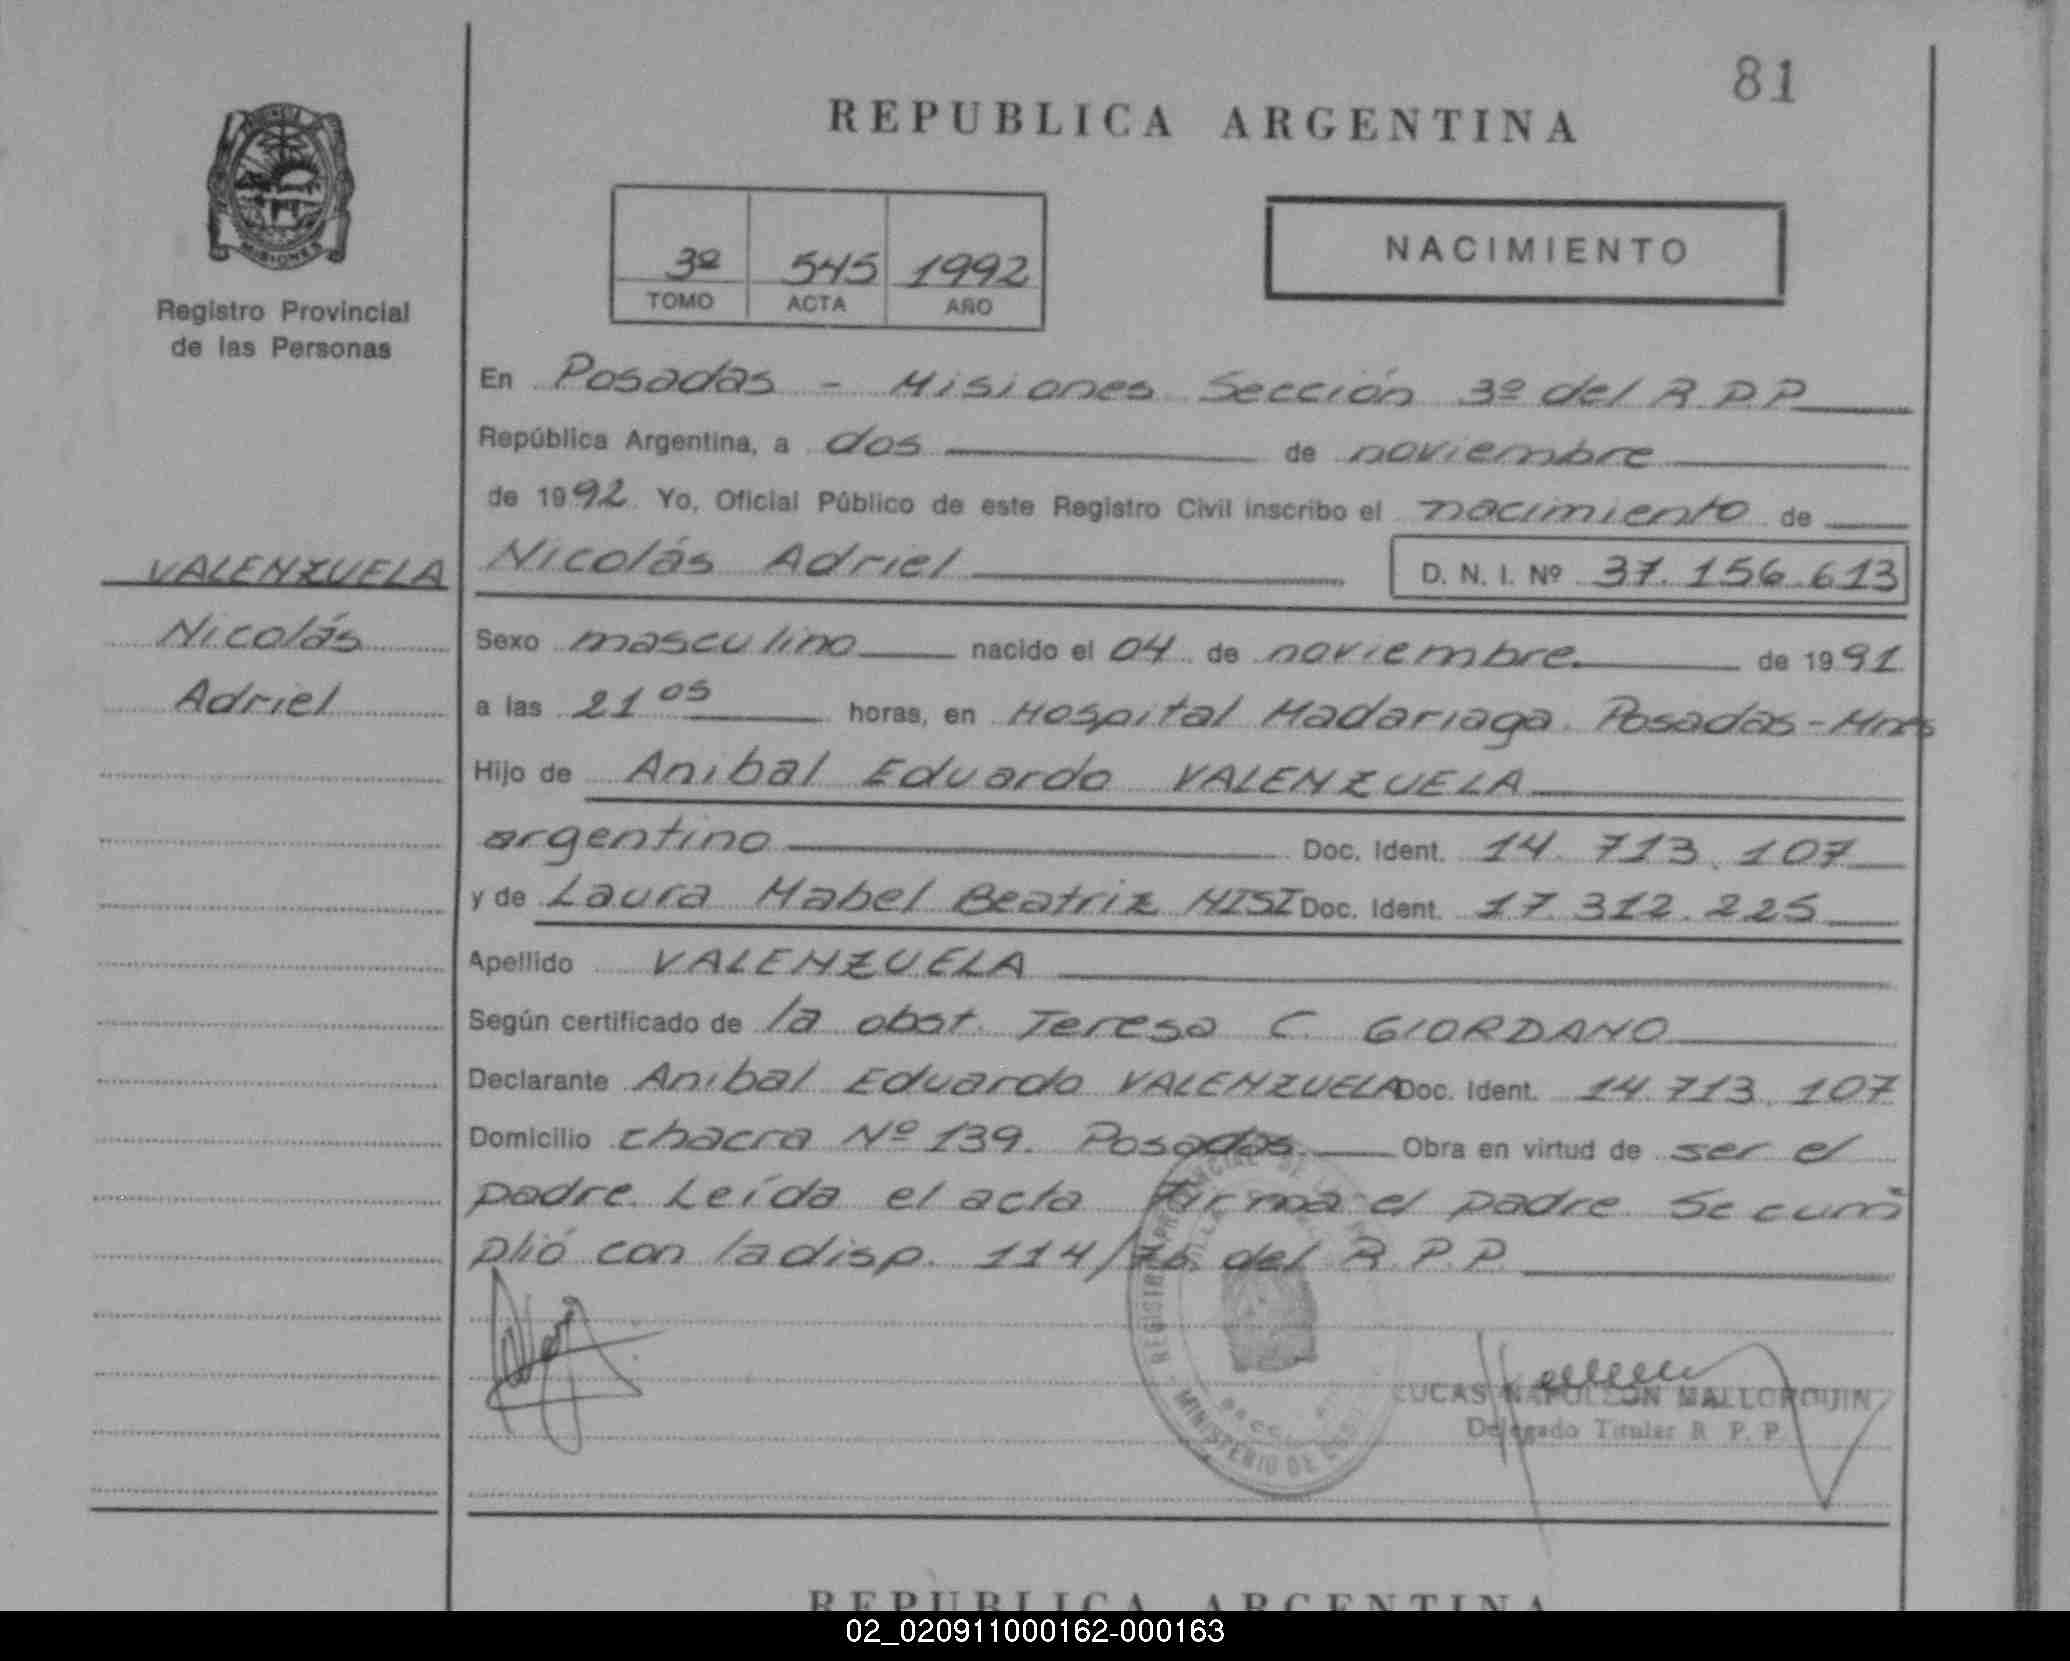 81
REPUBLICA ARGENTINA
MISIONES
Registro Provincial
de las Personas
3º 545 1992
TOMO ACTA AÑO
NACIMIENTO
En Posadas - Misiones Sección 3º del R.P.P.
República Argentina, a dos de noviembre
de 1992 Yo, Oficial Público de este Registro Civil inscribo el nacimiento de
VALENZUELA
Nicolás
Adriel
Nicolás Adriel D. N. I. Nº 37.156.613
Sexo masculino nacido el 04 de noviembre de 1991
a las 21 05 horas, en Hospital Madariaga. Posadas - Mnes
Hijo de Anibal Eduardo VALENZUELA
argentino Doc. Ident. 14.713.107
y de Laura Mabel Beatriz NISI Doc. Ident. 17.312.225
Apellido VALENZUELA
Según certificado de la obst. Teresa C. GIORDANO
Declarante Anibal Eduardo VALENZUELA Doc. Ident. 14.713.107
Domicilio chacra Nº 139. Posadas. Obra en virtud de ser el
padre. Leída el acta firma el padre Se cum
plió con la disp. 114/76 del R.P.P.
LUCAS NAPOLEON MALLORQUIN
Delegado Titular R. P. P.
MINISTERIO DE
REPUBLICA ARGENTINA
02_020911000162-000163